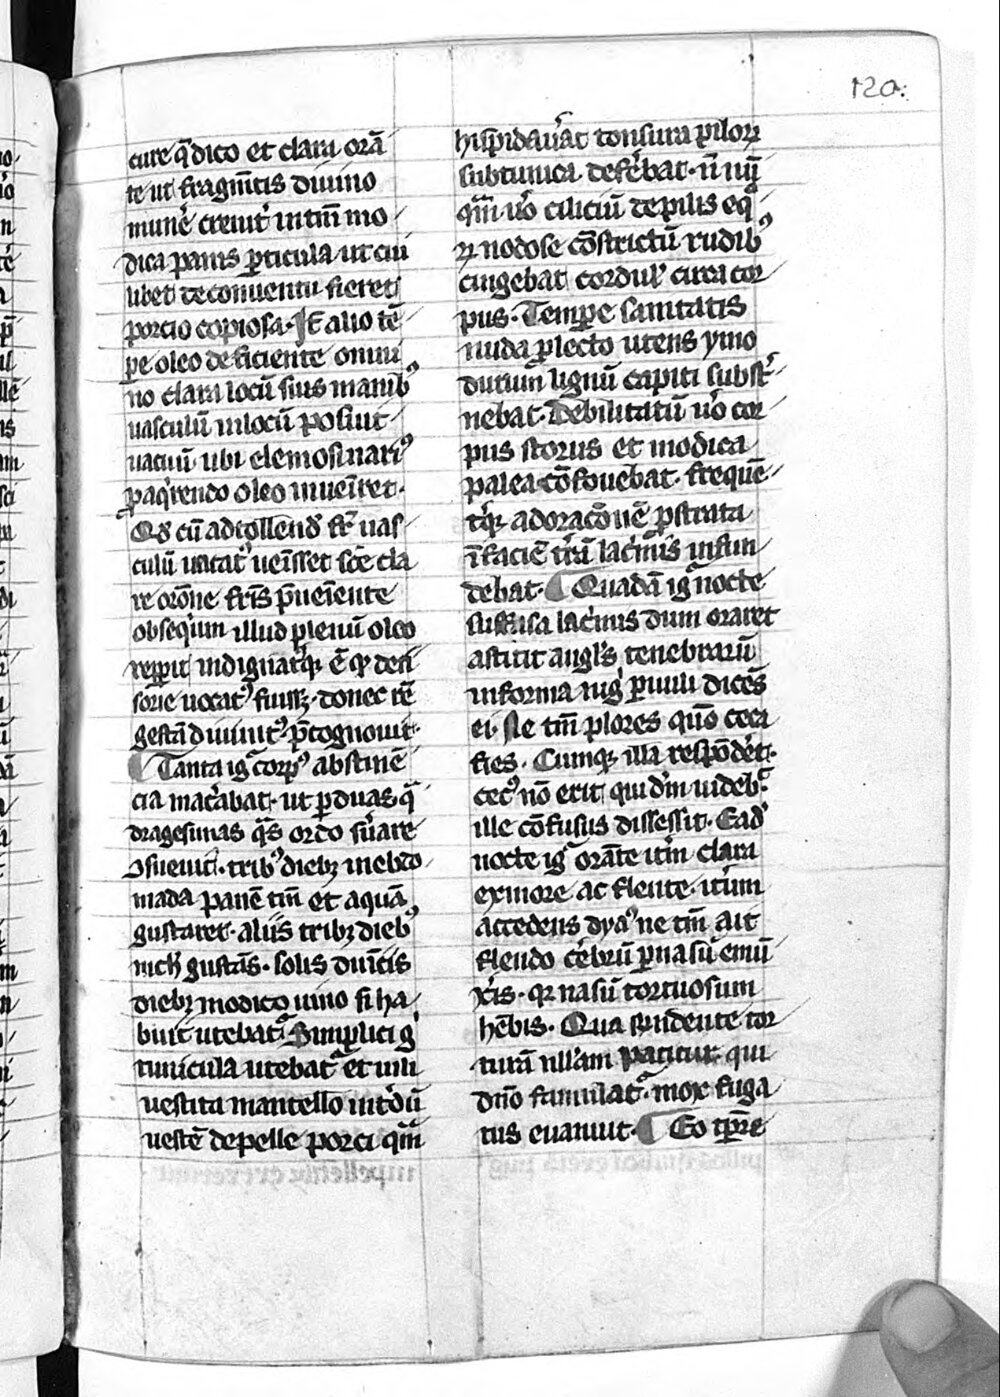 120.
cure q̄ dico et clara orā
te ut fragm̄tis diuino
mun̄e creuit in tm̄ mo
dica panis ꝑticula ut cui
libet de conuentu fieret
porcio copiosa. It̄ alio tē
ꝑe oleo deficiente omni
no clara locū suis manibꝰ
uasculū in locū posuit
uacuū ubi elemosinariꝰ
ꝓ aq̄rendo oleo inueīret.
Qd̓ cū ad tollend̓ fr̄ uas
culū uocatꝰ ueīsset sc̄e cla
re or̄one fr̄is p̄ueniente
obsequium illud plenū oleo
reꝑit indignatꝰqꝫ ē qꝫ deri
sorie uocatꝰ fuissꝫ. donec rē
gestā diuinitꝰ p̄cognouit.
¶ Tanta ig̓ corpꝰ abstinē
cia mac̓abat. ut ꝑ duas q̄
dragesimas q̄s ordo ẜuare
ꝯsueuit. tribꝰ diebꝫ in ebdo
mada panē tm̄ et aquā
gustaret. aliis tribꝫ diebꝰ
nich̓ gustās. solis dn̄icis
diebꝫ modico uino si ha
buit utebat᷑. Simplici g̓
tunicula utebat᷑ et uili
uestita mantello int̓dū
uestē de pelle porci qm̄
hispidau̓at tonsura pilorꝝ
sub tunica defe̓bat. n̄ nūq̄
qm̄ u̓o ciliciū de pilis eq̄
rꝝ nodose ꝯ̄strictū rudibꝰ
cingebat cordul̓ circa cor
pus. Tempe sanitatis
nuda ꝑ lecto utens ymo
durum lignū capiti subst̓
nebat. Debilitatū u̓o cor
pus storus et modica
palea cōfouebat. frequē
tꝰqꝫ adoracōnē p̄strata
ī faciē t̓rā lac̓mis infun
debat. ¶ Quadā ig̓ nocte
suffusa lac̓mis dum oraret
astitit angl̓s tenebrarū
in forma nig̓ ꝑuuli dicēs
ei. Ne tm̄ plores quō ceca
fies. Cumqꝫ illa respōde̓t.
cecꝰ nō erit qui dm̄ uideb̓.
ille cōfusus discessit. Ead̓
nocte ig̓ orāte it̓m clara
ex more ac flente. it̓um
accedens dyaꝰ ne tm̄ ait
flendo ce̓brū ꝑ nasū emū
xe̓is. qꝫ nasū tortuosum
hēbis. Qua rn̄dente tor
turā null̓am patitur qui
dn̄o famulat᷑. mox fuga
tus euanuit. ¶ Eo tꝑe